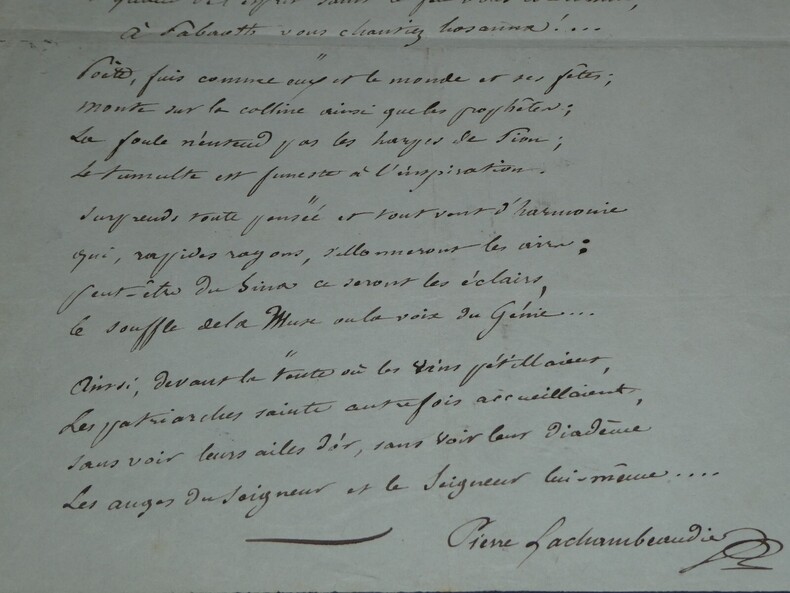 de l'esprit saint le feu vous
À Sabaoth vous chantiez hosanna!...
Poëte, fuis comme eux et le monde et ses fêtes;
monte sur la colline ainsi que les prophêtes;
La foule n'entend pas les harpes de Sion;
Le tumulte est funeste à l'inspiration.
Surprends toute pensée et tout vent d'harmonie
qui, rapides rayons, sillonneront les airs;
peut-être du Sina ce seront les éclairs,
le souffle de la Muse ou la voix du Génie...
Ainsi, devant la tente où les vins pétillaient,
Les patriarches saints autrefois accueillaient,
sans voir leurs ailes d'or, sans voir leur diadème
Les anges du Seigneur et le Seigneur lui-même....
Pierre Lachambeaudie